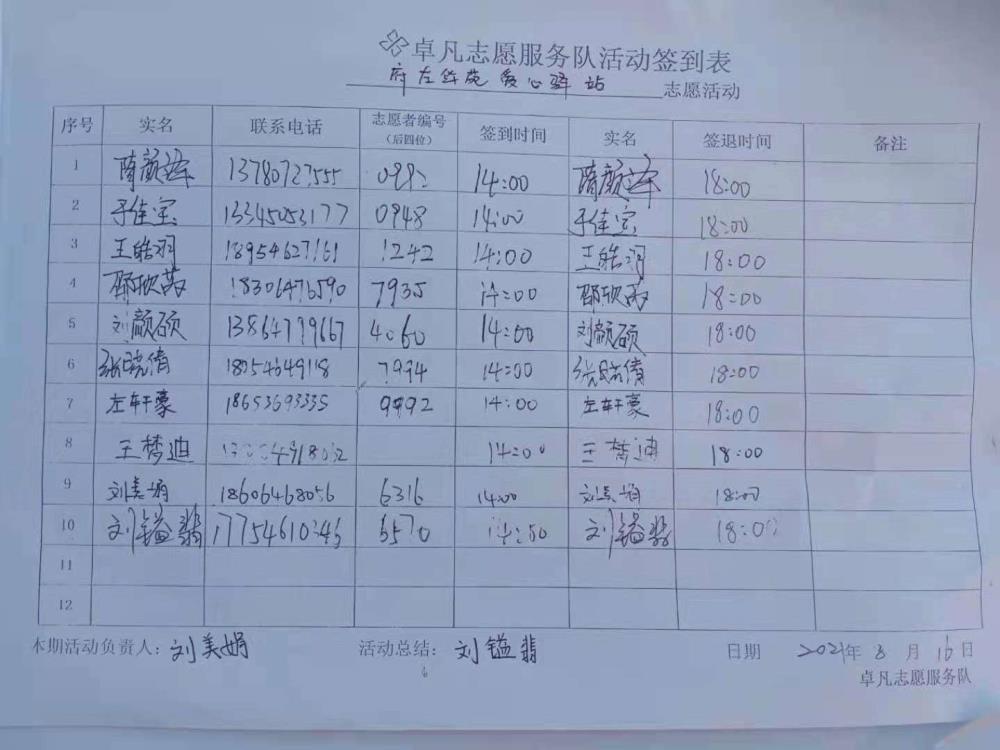 卓凡志愿服务队活动签到表
府左华苑爱心驿站 志愿活动
序号 实名 联系电话 志愿者编号（后四位） 签到时间 实名 签退时间 备注
1 隋颜泽 13780727555 14:00 隋颜泽 18:00
2 于佳宝 13345053177 0948 14:00 于佳宝 18:00
3 王皓羽 18954627161 1242 14:00 王皓羽 18:00
4 邵欣芮 18306476590 7935 14:00 邵欣芮 18:00
5 刘颜硕 13864799667 4060 14:00 刘颜硕 18:00
6 张晓倩 7994 14:00 张晓倩 18:00
7 左轩豪 18653693335 9992 14:00 左轩豪 18:00
8 王梦迪 14:00 王梦迪 18:00
9 刘美娟 18606468056 6316 14:00 刘美娟 18:00
10 刘镒翡 6570 刘镒翡 18:00
11
12
本期活动负责人：刘美娟 活动总结：刘镒翡 日期 2021年8月16日
6 卓凡志愿服务队